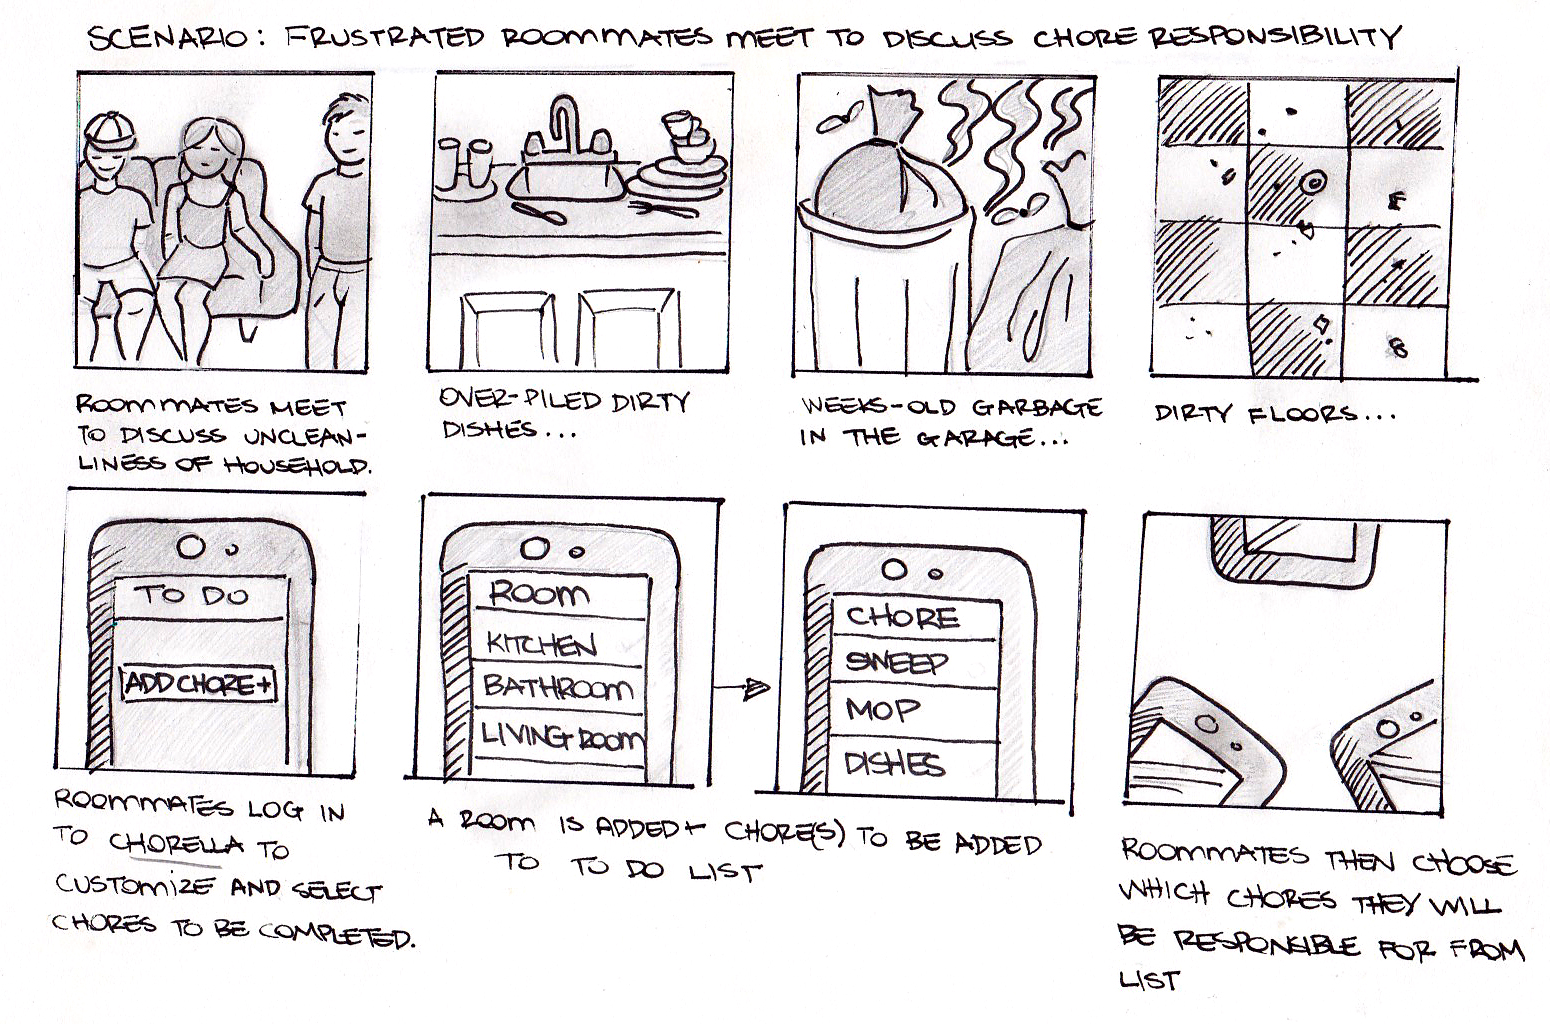 SCENARIO: FRUSTRATED ROOMMATES MEET TO DISCUSS CHORE RESPONSIBILITY
ROOMMATES MEET
TO DISCUSS UNCLEAN-
LINESS OF HOUSEHOLD.
OVER-PILED DIRTY
DISHES...
WEEKS-OLD GARBAGE
IN THE GARAGE...
DIRTY FLOORS...
TO DO
ADD CHORE+
ROOMMATES LOG IN
TO CHORELLA TO
CUSTOMIZE AND SELECT
CHORES TO BE COMPLETED.
ROOM
KITCHEN
BATHROOM
LIVING ROOM
CHORE
SWEEP
MOP
DISHES
A ROOM IS ADDED + CHORE(S) TO BE ADDED
TO TO DO LIST
ROOMMATES THEN CHOOSE
WHICH CHORES THEY WILL
BE RESPONSIBLE FOR FROM
LIST